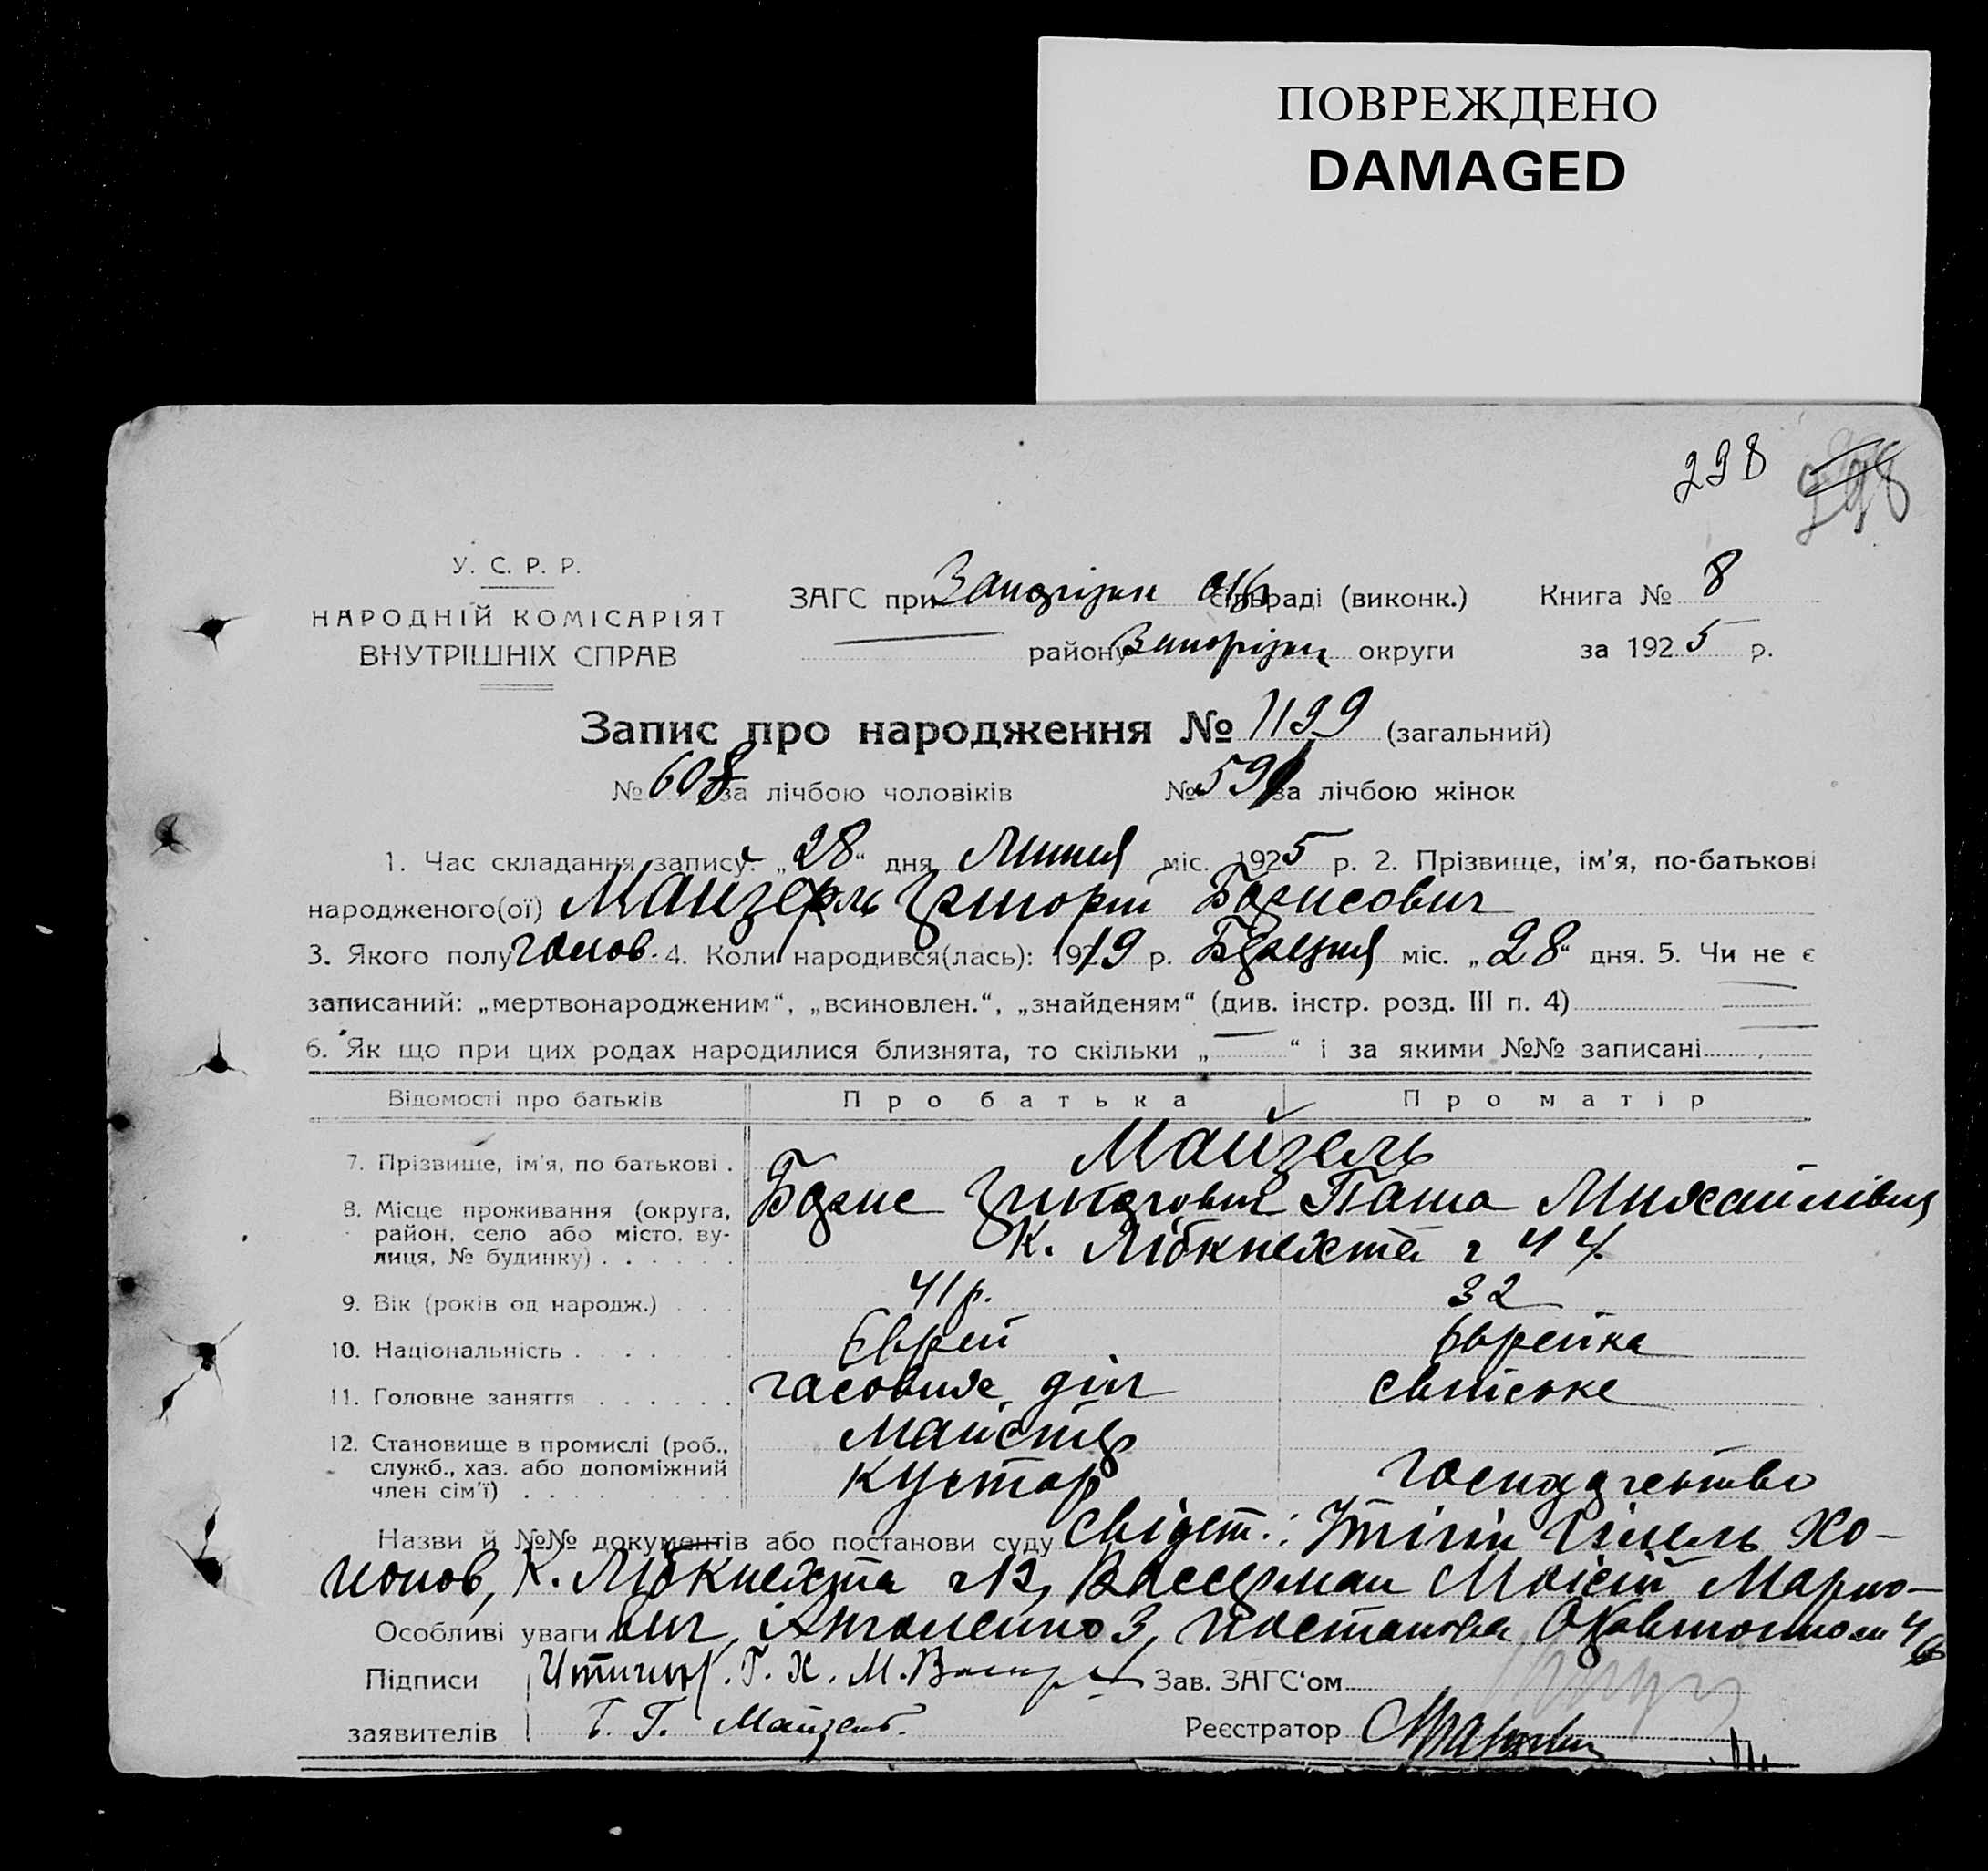 ПОВРЕЖДЕНО
DAMAGED
298
У. С. Р. Р.
НАРОДНІЙ КОМІСАРІЯТ
ВНУТРІШНІХ СПРАВ
ЗАГС при Запорізьк сільраді (виконк.) Книга № 8
району Запорізьк округи за 1925 р.
Запис про народження № 1199 (загальний)
№ 608 за лічбою чоловіків № 591 за лічбою жінок
1. Час складання запису: „28“ дня Липня міс. 1925 р. 2. Прізвище, ім'я, по-батькові
народженого(ої) Майзель Григорій Борисович
3. Якого полу чолов. 4. Коли народився(лась): 1919 р. міс. „28“ дня. 5. Чи не є
записаний: „мертвонародженим“, „всиновлен.“, „знайденям“ (див. інстр. розд. III п. 4)
6. Як що при цих родах народилися близнята, то скільки „ — “ і за якими №№ записані —
Відомості про батьків Про батька Про матір
7. Прізвище, ім'я, по батькові . Майзель
Борис Григорович Паша Михайлівна
8. Місце проживання (округа, район, село або місто, вулиця, № будинку) . . . . . . К. Лібкнехта ч 44
9. Вік (років од народж.) . . . 41 р. 32
10. Національність . . . . . Єврей Єврейка
11. Головне заняття . . . . . . часових діл свійське
майстер
12. Становище в промислі (роб., служб., хаз. або допоміжний член сім'ї) . . . . . . кустар господарство
Назви й №№ документів або постанови суду свідет.: Ітігін Гілель Хо-
нонов, К. Лібкнехта Вассерман Мойсей Марко-
Особливі уваги вич, 3, постанова
Підписи Г. Х. М.
Зав. ЗАГС'ом
заявителів Б. Г. Майзель.
Реєстратор